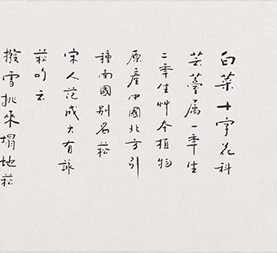 白菜十字花科
芸薹属一年生
二年生艸本植物
原產中國北方引
種南國別名菘
宋人范成大有詠
菘吟云
撥雪挑來塌地菘